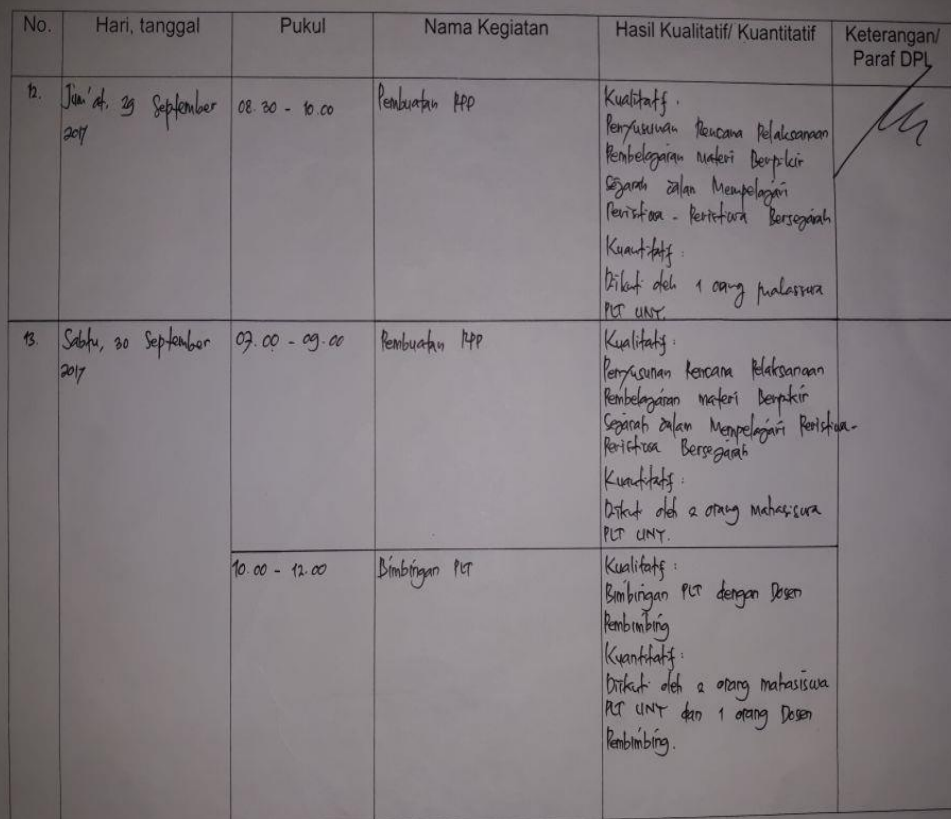 No. Hari, tanggal Pukul Nama Kegiatan Hasil Kualitatif/ Kuantitatif Keterangan/
Paraf DPL
12. Jum'at, 29 September 2017 08.30 - 10.00 Pembuatan RPP
Kualitatif :
Penyusunan Rencana Pelaksanaan
Pembelajaran materi Berpikir
Sejarah dalam Mempelajari
Peristiwa - Peristiwa Bersejarah
Kuantitatif :
Diikuti oleh 1 orang mahasiswa
PLT UNY.
13. Sabtu, 30 September 2017 07.00 - 09.00 Pembuatan RPP
Kualitatif :
Penyusunan Rencana Pelaksanaan
Pembelajaran materi Berpikir
Sejarah dalam Mempelajari Peristiwa-
Peristiwa Bersejarah
Kuantitatif :
Diikuti oleh 2 orang mahasiswa
PLT UNY.
10.00 - 12.00 Bimbingan PLT
Kualitatif :
Bimbingan PLT dengan Dosen
Pembimbing
Kuantitatif :
Diikuti oleh 2 orang mahasiswa
PLT UNY dan 1 orang Dosen
Pembimbing.